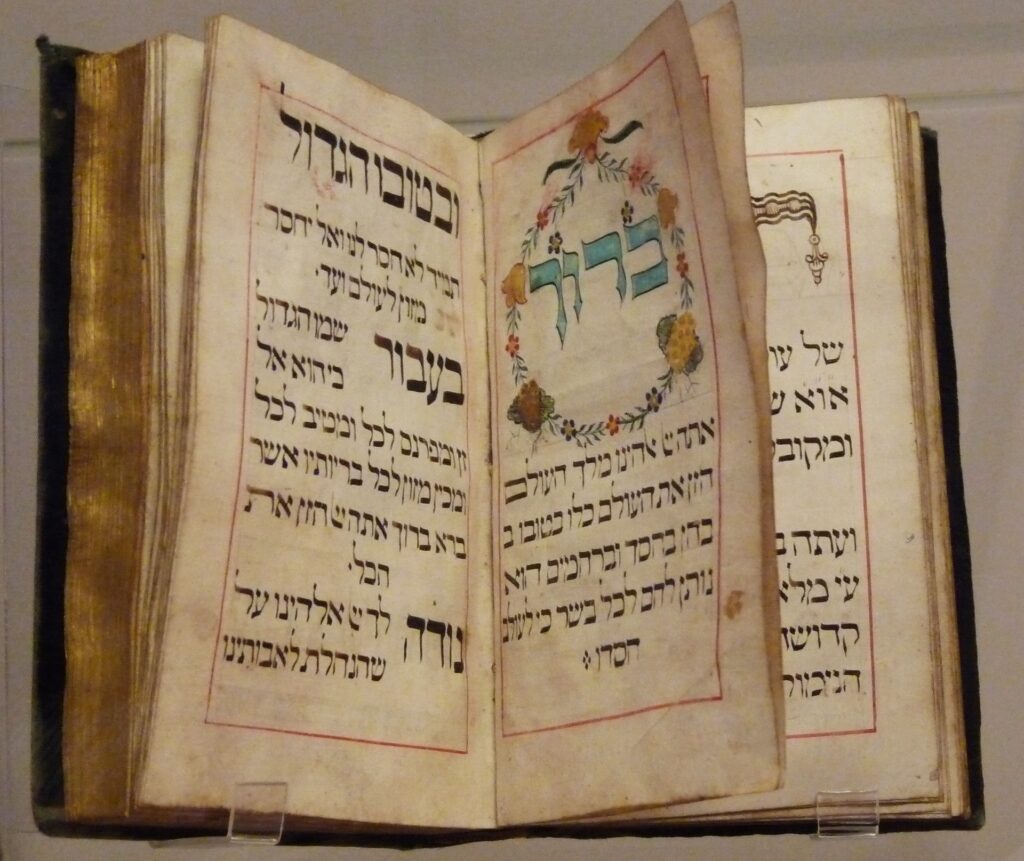 של
ועתה
ברוך
אתה יי אלהינו מלך העולם
הזן את העולם כלו בטובו ב
בחן בחסד וברחמים הוא
נותן לחם לכל בשר כי לעולם
חסדו
ובטובו הגדול
תמיד לא חסר לנו ואל יחסר
מזון לעולם ועד׃
בעבור שמו הגדול
כי הוא אל
זן ומפרנס לכל ומטיב לכל
ומכין מזון לכל בריותיו אשר
ברא ברוך אתה יי הזן את
הכל׃
נודה לך יי אלהינו על
שהנחלת לאבותינו